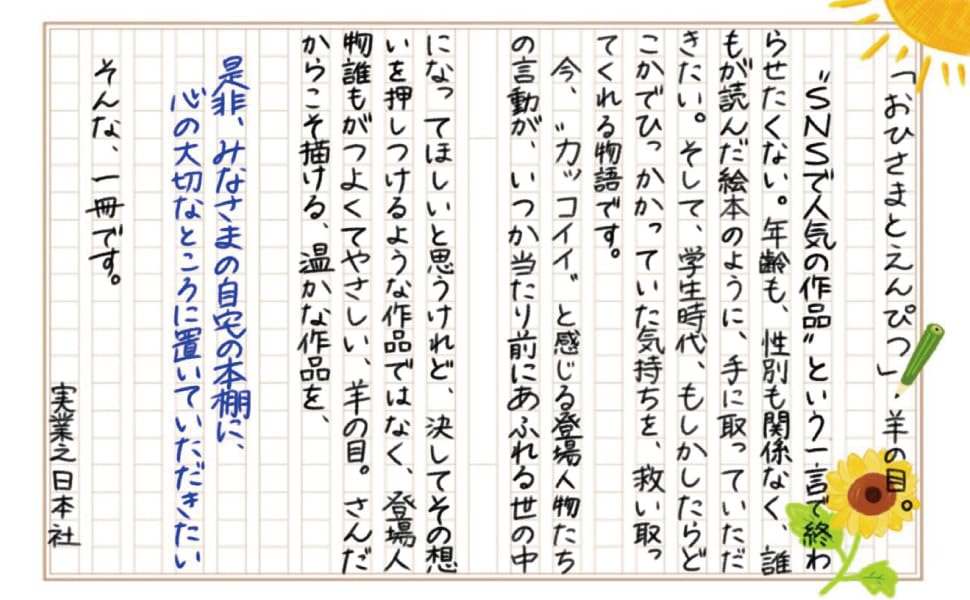 「おひさまとえんぴつ」・羊の目。
〝SNSで人気の作品〟という一言で終わ
らせたくない。年齢も、性別も関係なく、誰
もが読んだ絵本のように、手に取っていただ
きたい。そして、学生時代、もしかしたらど
こかでひっかかっていた気持ちを、救い取っ
てくれる物語です。
今、〝カッコイイ〟と感じる登場人物たち
の言動が、いつか当たり前にあふれる世の中
になってほしいと思うけれど、決してその想
いを押しつけるような作品ではなく、登場人
物誰もがつよくてやさしい、羊の目。さんだ
からこそ描ける、温かな作品を、
是非、みなさまの自宅の本棚に、
心の大切なところに置いていただきたい
そんな、一冊です。
実業之日本社